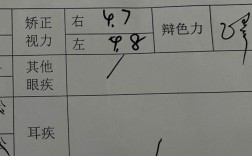 矫正 右 4.7 辩色力
视力 左 4.8
其他
眼疾
耳疾